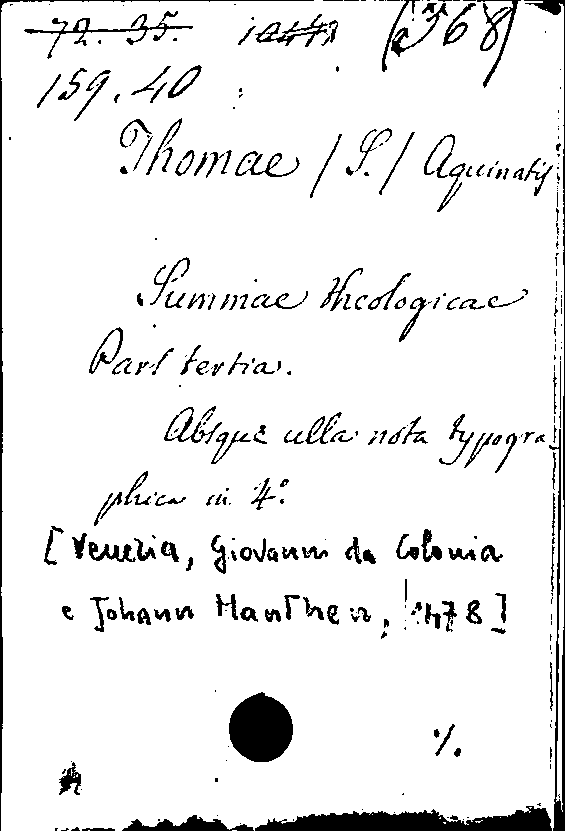 72. 35. (368)
159.40
Thomae / S. / Aquinatis
Summae theologicae
Pars tertia.
Absque ulla nota typogra-
phica in 4º.
[Venezia, Giovanni da Colonia
e Johann Manthen, 1478]
%.